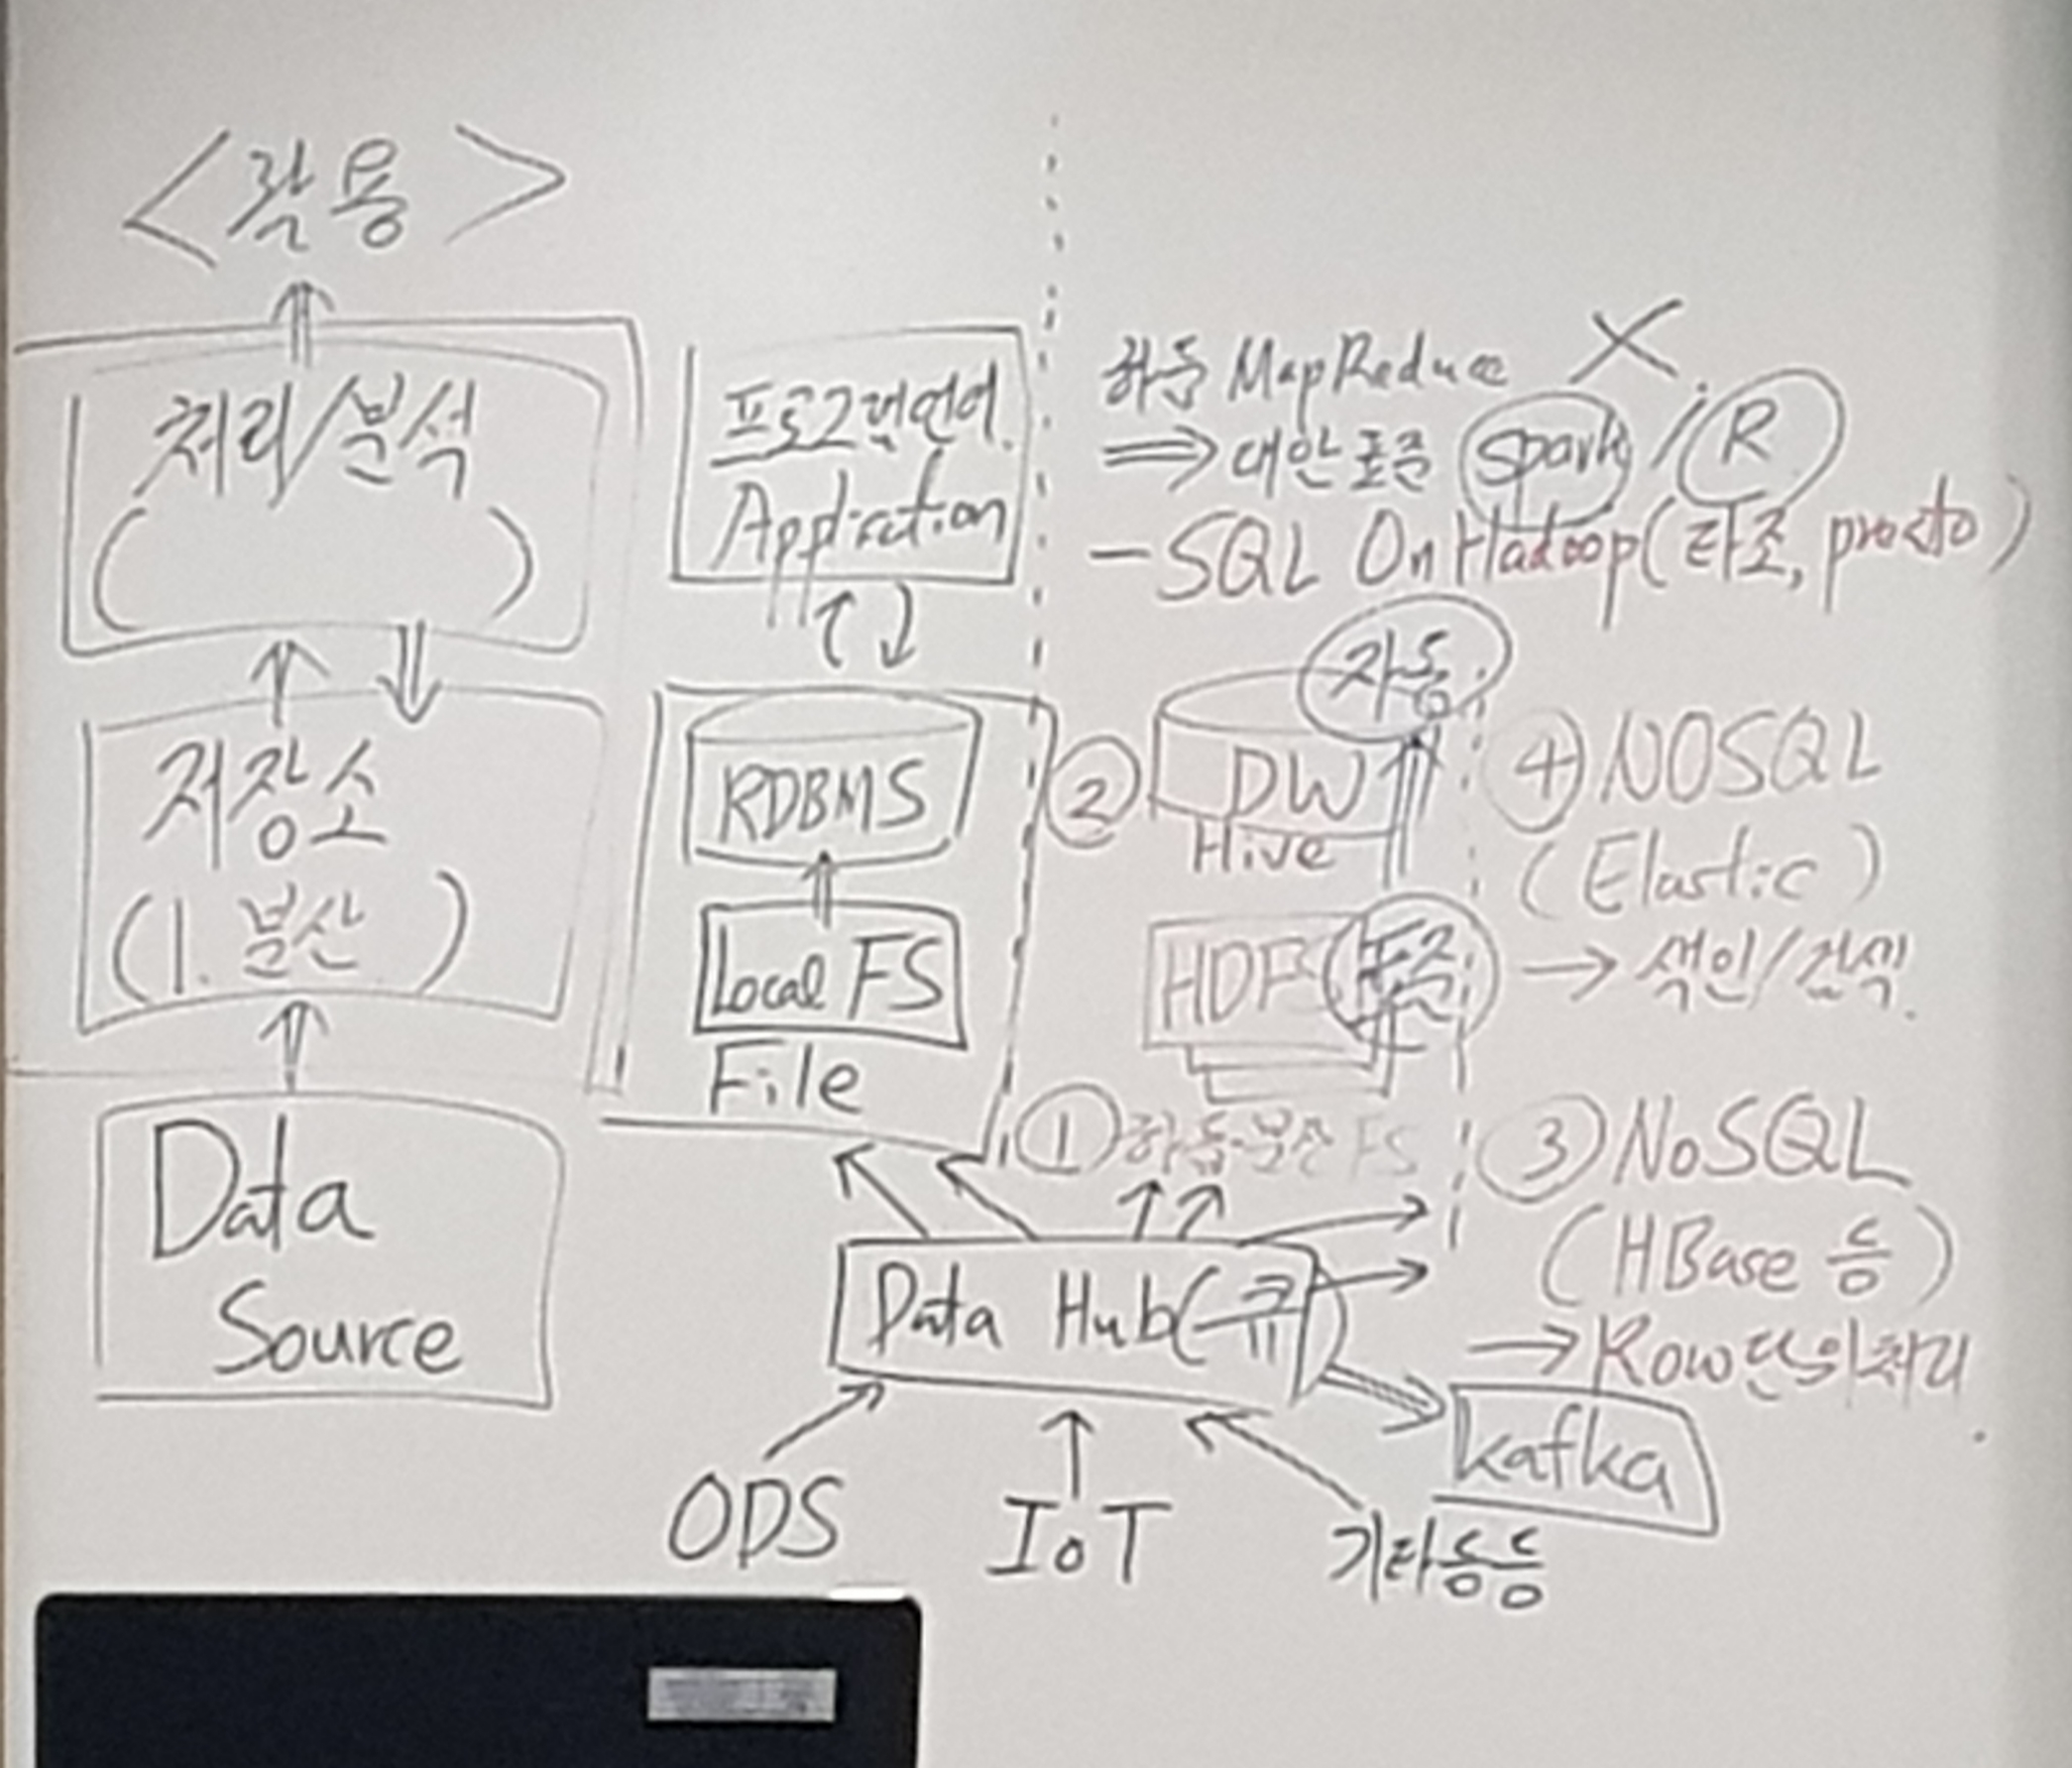 <활용>
처리/분석
(          )
저장소
(1. 분산     )
Data
Source
프로그램언어.
Application
RDBMS
Local FS
File
하둡 MapReduce X
⇒ 대안 표준 Spark / R
- SQL On Hadoop(타조, presto)
자동
② DW
Hive
HDFS 표준
① 하둡-분산 FS
④ NOSQL
(Elastic)
→ 색인/검색.
③ NoSQL
(HBase 등)
→ Row단위처리
Data Hub(큐)
kafka
ODS
IoT
기타등등